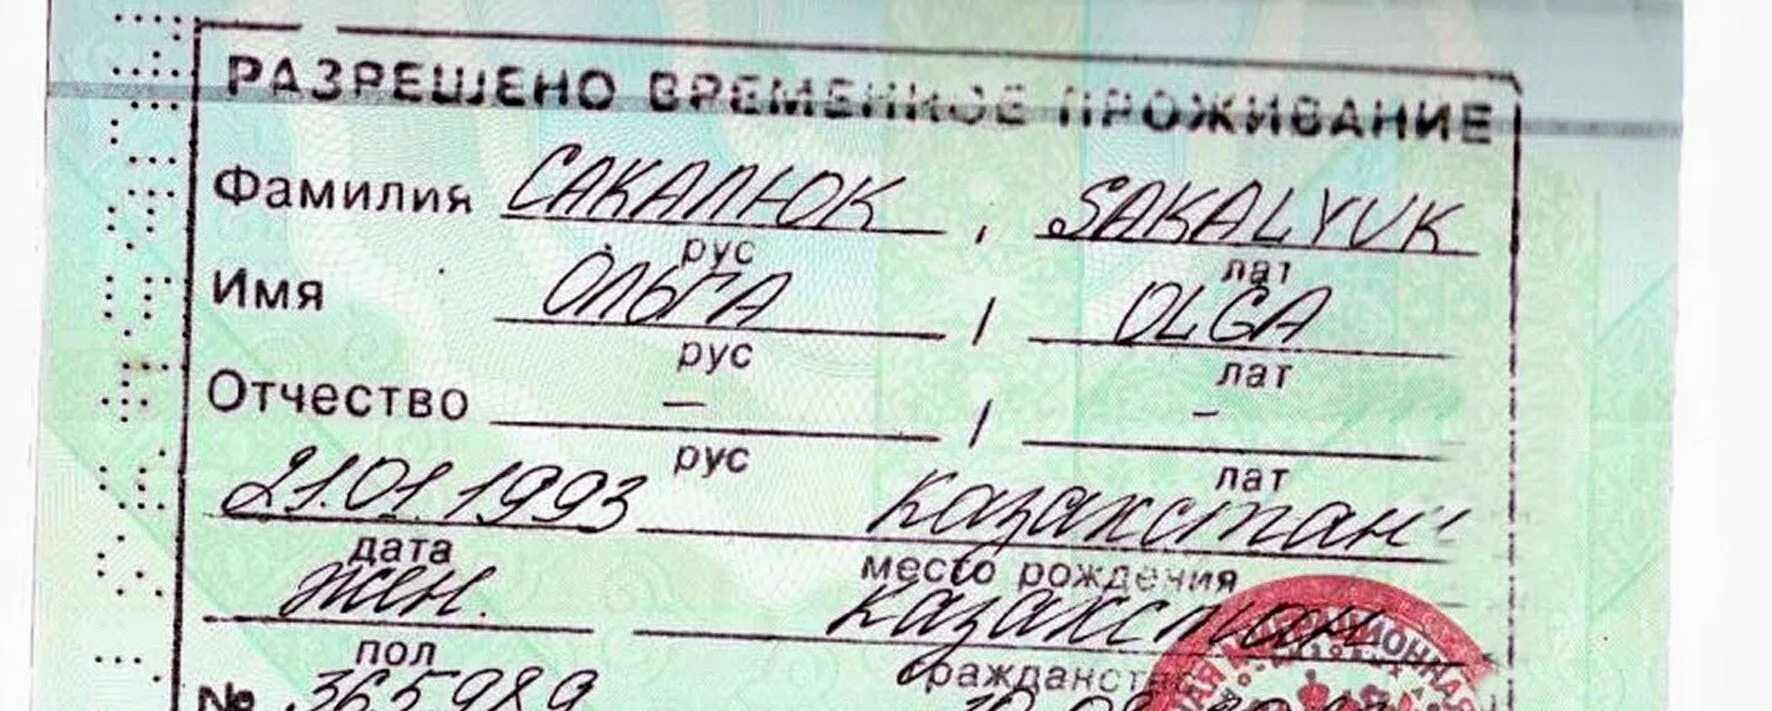 РАЗРЕШЕНО ВРЕМЕННОЕ ПРОЖИВАНИЕ
Фамилия САКАЛЮК , SAKALYUK
рус лат
Имя ОЛЬГА / OLGA
рус лат
Отчество – / –
рус лат
21.01.1993 Казахстан
дата место рождения
жен. Казахстан
пол гражданство
№ 365989